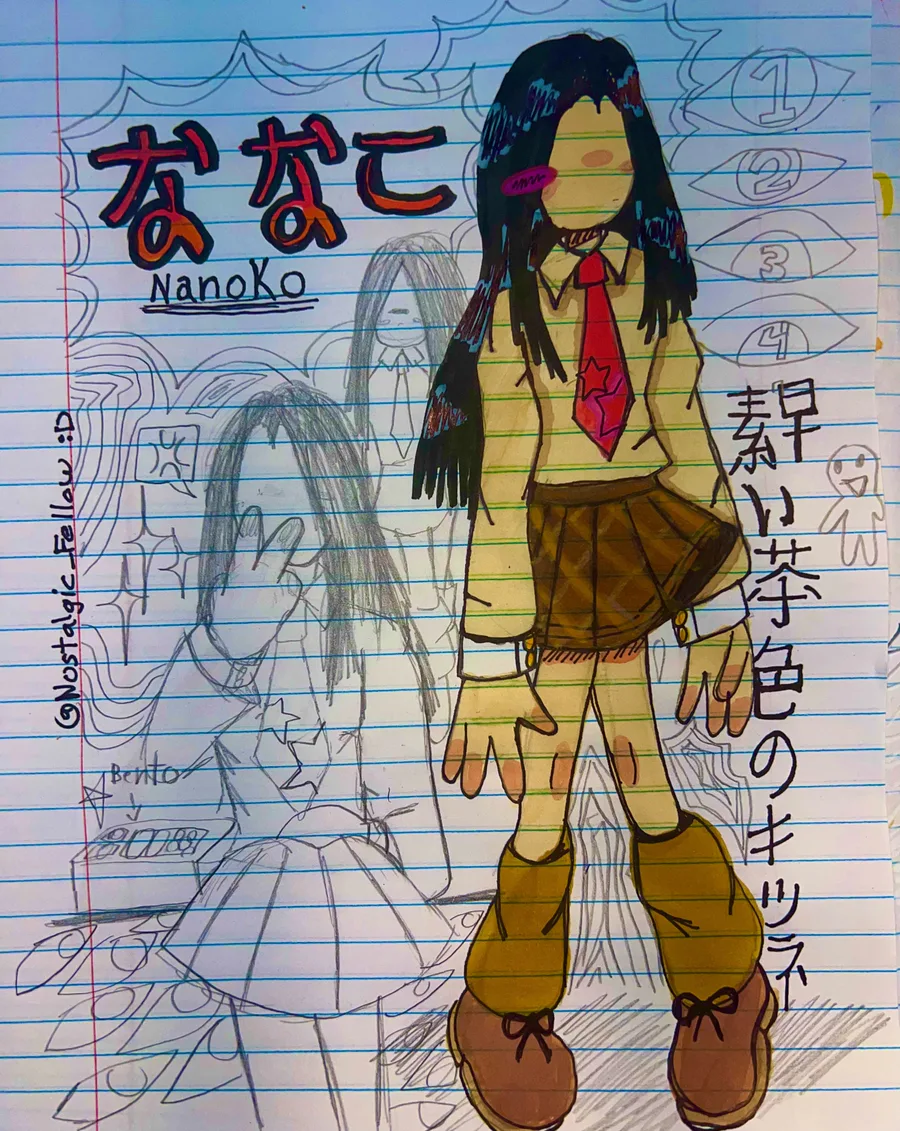 ななこ
NanoKo
1
2
3
4
素早い茶色のキツネ
@Nostalgic_Fellow :D
Bento